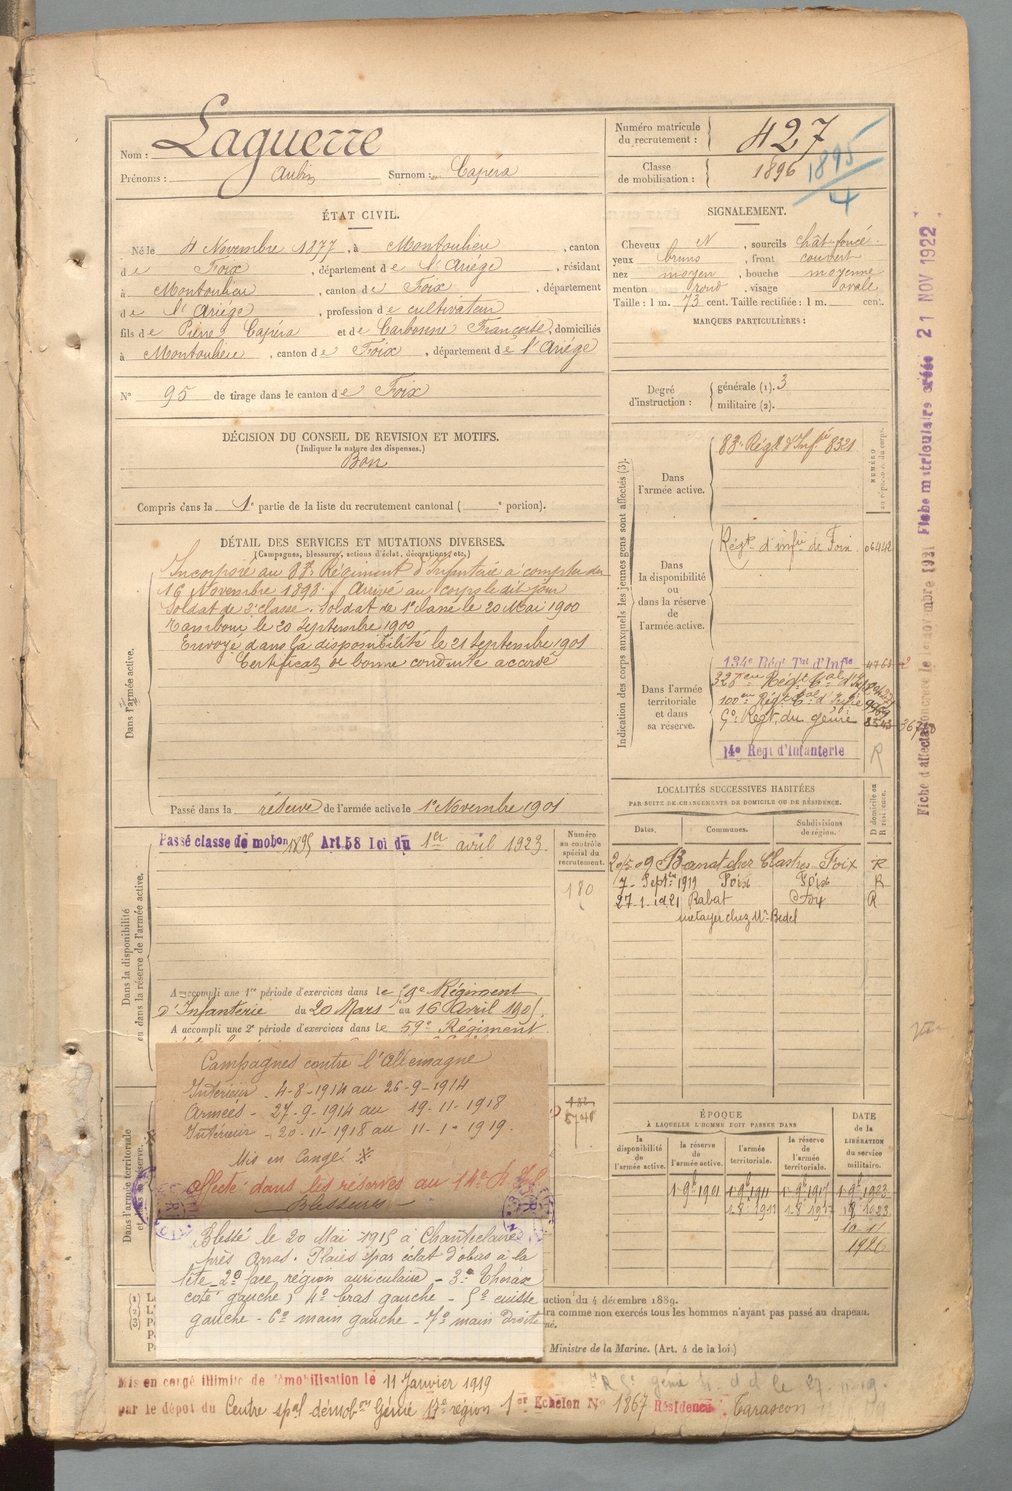 Nom : Laguerre
Prénoms : Aubin Surnom : Capéra
Numéro matricule du recrutement : 427
Classe de mobilisation : 1896 1895/4
ÉTAT CIVIL.
Né le 4 Novembre 1877, à Montoulieu, canton
de Foix, département de l'Ariége, résidant
à Montoulieu, canton de Foix, département
de l'Ariége, profession de cultivateur
fils de Pierre Capéra et de Carbonne Françoise, domiciliés
à Montoulieu, canton de Foix, département de l'Ariége
N° 95 de tirage dans le canton de Foix
SIGNALEMENT.
Cheveux N, sourcils chât foncé
yeux bruns, front couvert
nez moyen, bouche moyenne
menton rond, visage ovale
Taille : 1 m. 73 cent. Taille rectifiée : 1 m. cent.
MARQUES PARTICULIÈRES :
Degré d'instruction : générale (1). 3
militaire (2).
DÉCISION DU CONSEIL DE REVISION ET MOTIFS.
(Indiquer la nature des dispenses.)
Bon
Compris dans la 1e partie de la liste du recrutement cantonal ( e portion).
DÉTAIL DES SERVICES ET MUTATIONS DIVERSES.
(Campagnes, blessures, actions d'éclat, décorations, etc.)
Dans l'armée active.
Incorporé au 83e Régiment d'Infanterie à compter du
16 Novembre 1898. Arrivé au corps le dit jour
Soldat de 2e classe. Soldat de 1e classe le 20 Mai 1900
Tambour le 20 Septembre 1900
Envoyé dans la disponibilité le 21 Septembre 1901
Certificat de bonne conduite accordé
Passé dans la réserve de l'armée active le 1er Novembre 1901
Indication des corps auxquels les jeunes gens sont affectés (3).
Dans l'armée active.
83e Régt d'Infrie 8321
NUMÉRO
Dans la disponibilité ou dans la réserve de l'armée active.
Régt d'infie de Foix
Dans l'armée territoriale et dans sa réserve.
134e Régt Tal d'Infie
14e Regt d'Infanterie
R
LOCALITÉS SUCCESSIVES HABITÉES
PAR SUITE DE CHANGEMENTS DE DOMICILE OU DE RÉSIDENCE.
Dates. Communes. Subdivisions de région. D domicile ou R résidence.
Banat chez Clastres Foix R
7 - Septbre 1919 Foix Foix R
27-1-1921 Rabat Foix R
métayer chez Mr Bedel
Dans la disponibilité ou dans la réserve de l'armée active.
Passé classe de mobon 1895 Art. 58 loi du 1er avril 1923
Numéro au contrôle spécial du recrutement.
180
A accompli une 1re période d'exercices dans le 59e Régiment
d'Infanterie du 20 Mars au 16 Avril 1905.
A accompli une 2e période d'exercices dans le 59e Régiment
Dans l'armée territoriale et dans sa réserve.
Campagnes contre l'Allemagne
Intérieur - 4-8-1914 au 26-9-1914
Armées - 27-9-1914 au 19-11-1918
Intérieur - 20-11-1918 au 11-1-1919.
Mis en Congé
affecté dans les réserves au 14e R.I.
Blessures
Blessé le 20 Mai 1915 à Chanteclaire
près Arras. Plaies par éclat d'obus à la
tête - 2° face, région auriculaire - 3° Thorax
coté gauche, 4° bras gauche - 5° cuisse
gauche - 6° main gauche - 7° main droite
ÉPOQUE
À LAQUELLE L'HOMME DOIT PASSER DANS
la disponibilité de l'armée active. la réserve de l'armée active. l'armée territoriale. la réserve de l'armée territoriale.
DATE de la LIBÉRATION du service militaire.
1-9bre 1901 1-9bre 1911 1-9bre 1917 1-9bre 1923
1926
uction du 4 décembre 1889.
ra comme non exercés tous les hommes n'ayant pas passé au drapeau.
né.
Ministre de la Marine. (Art. 4 de la loi.)
Mis en congé illimité de démobilisation le 11 Janvier 1919
par le dépôt du Centre spal démobon Génie 17e région 1er Echelon N° 1867 Résidence Tarascon
Fiche matriculaire créée 21 NOV 1922